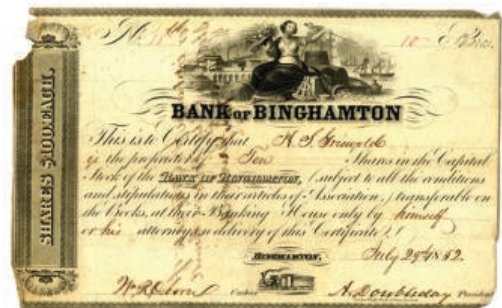 No.
10 Shares
BANK OF BINGHAMTON
This is to Certify that H. S. Griswold
is the proprietor of Ten Shares in the Capital
Stock of the BANK OF BINGHAMTON, (subject to all the conditions
and stipulations in their articles of Association,) transferable on
the Books, at their Banking House only by himself
or his attorney, on delivery of this Certificate
BINGHAMTON, July 29th 1852.
Cashier A. Doubleday President
SHARES $100 EACH.